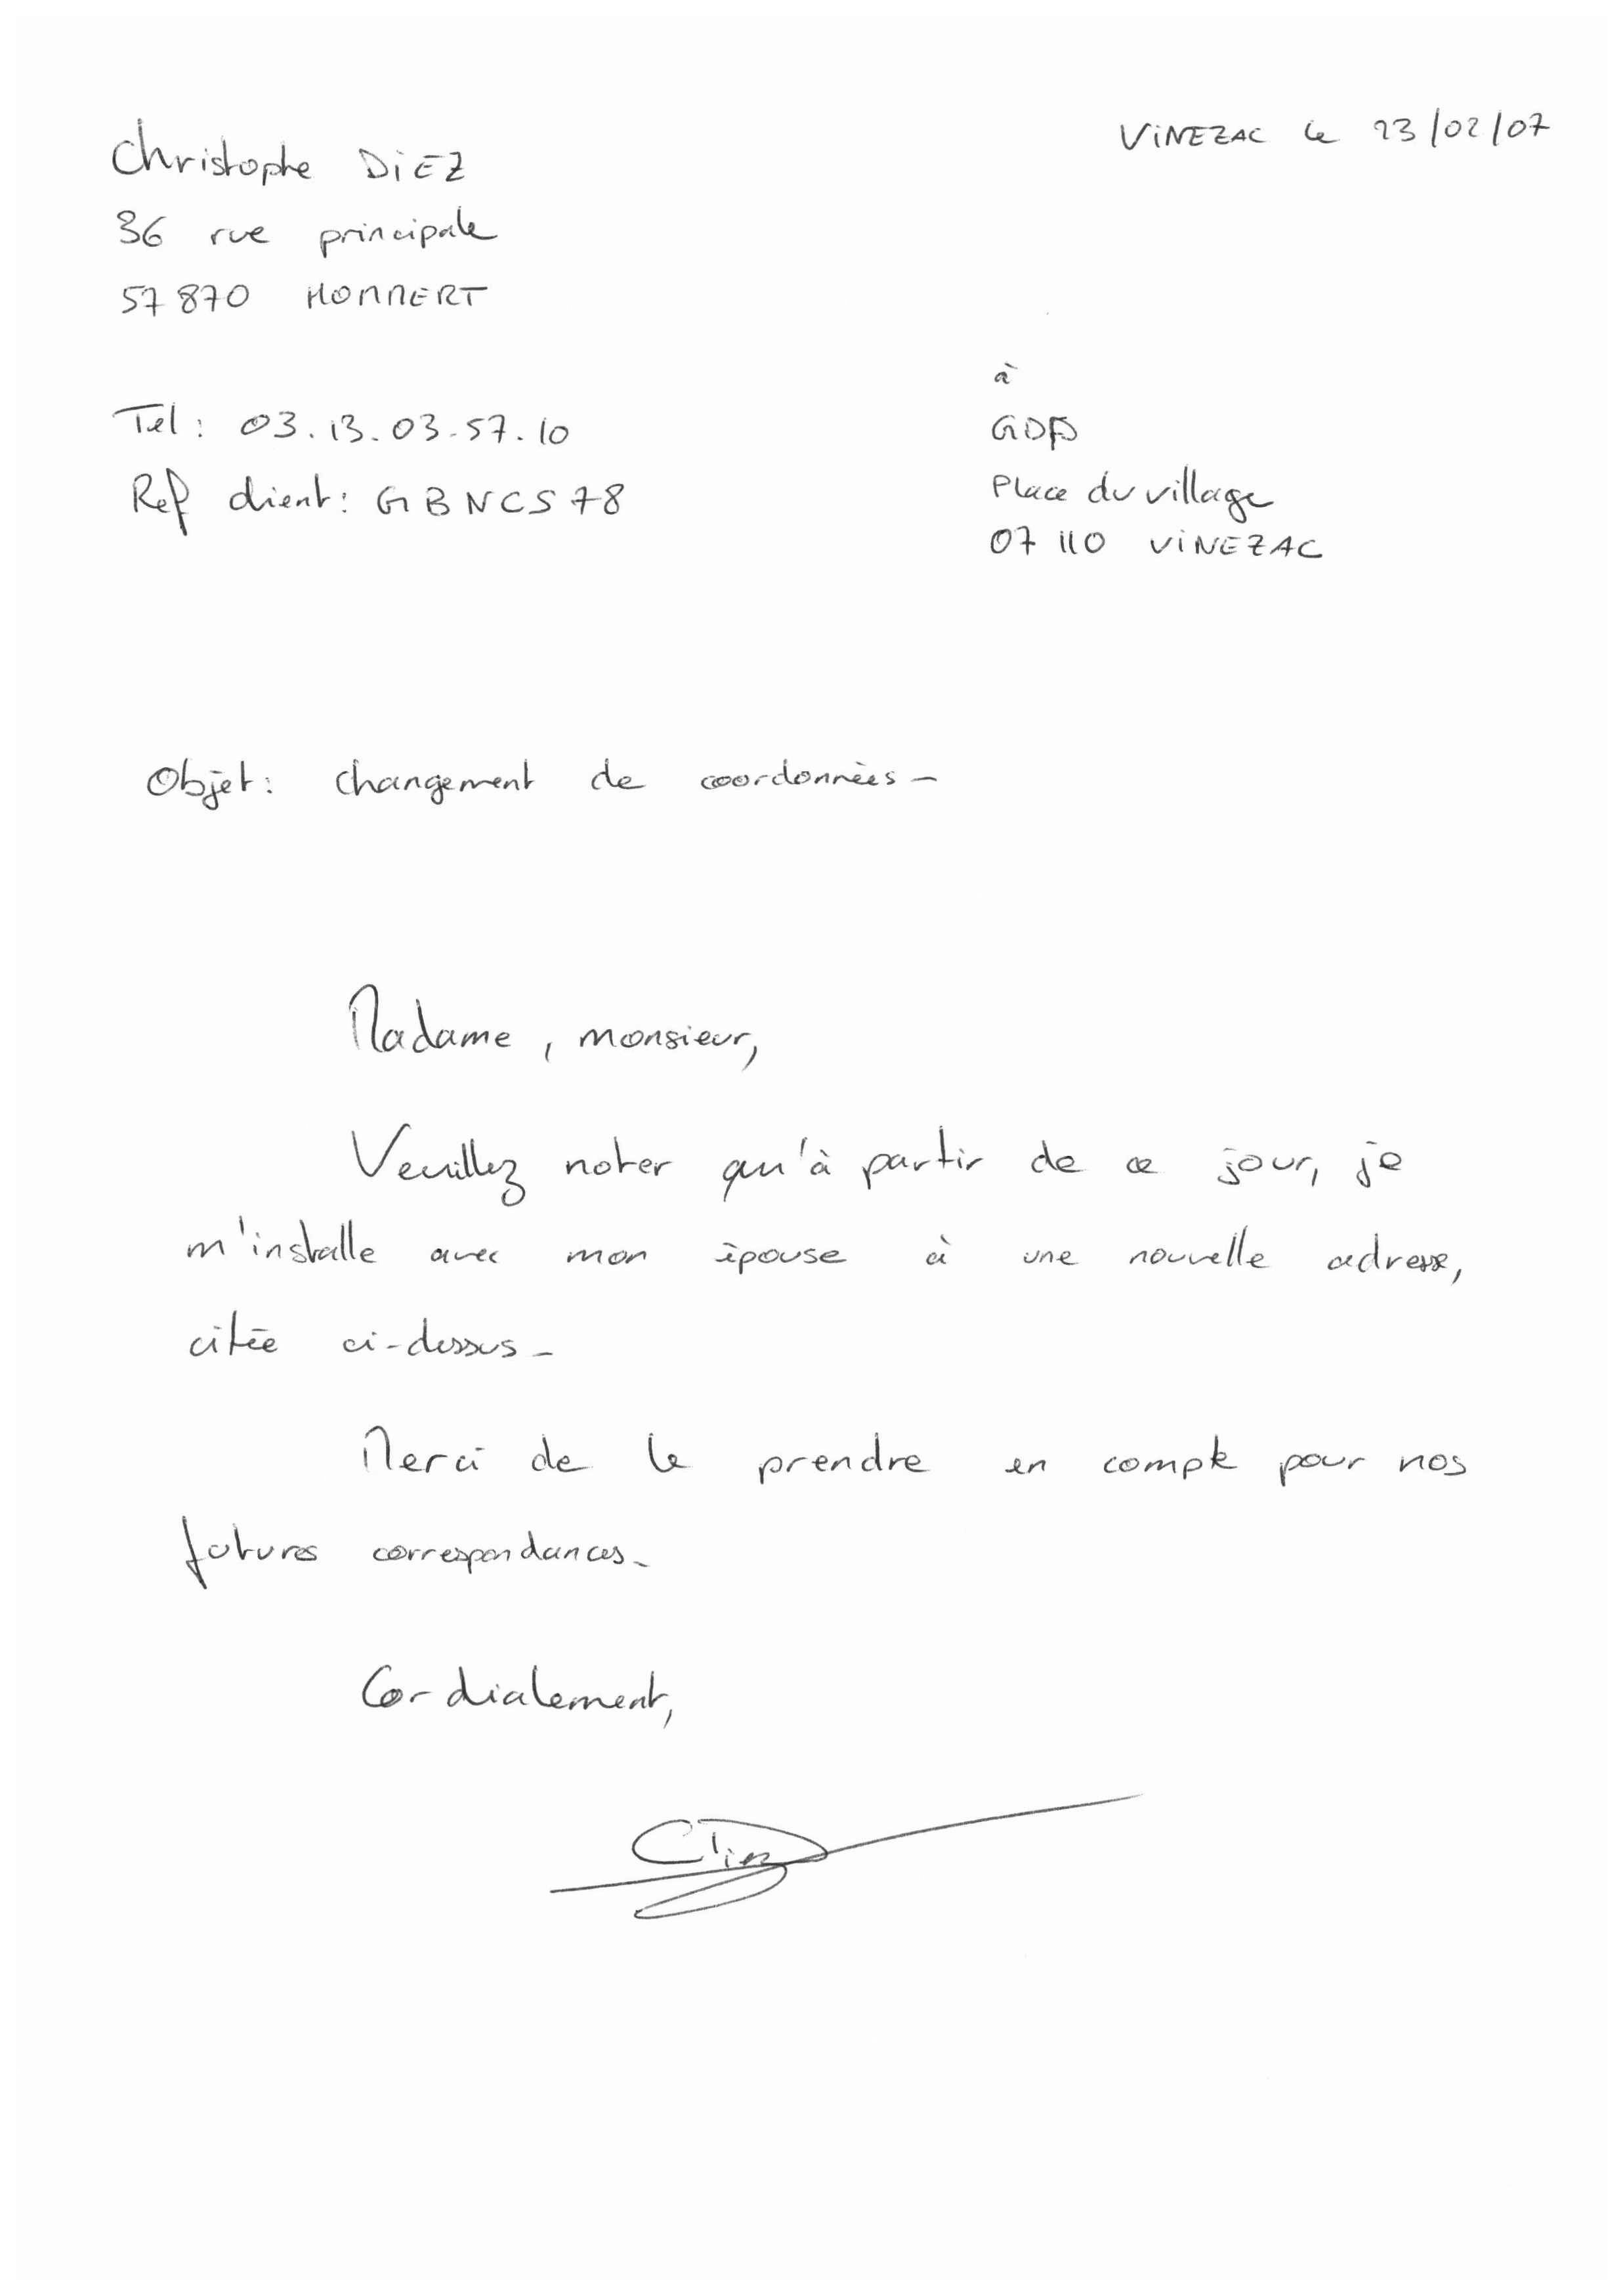 Christophe DiEZ
ViNEZAC le 23/02/07
36 rue principale
57870 HOMMERT
Tel : 03.13.03.57.10
Ref client : GBNCS78
à
GDF
Place du village
07110 ViNEZAC
Objet : changement de coordonnées -
Madame, monsieur,
Veuillez noter qu'à partir de ce jour, je
m'installe avec mon épouse à une nouvelle adresse,
citée ci-dessus -
Merci de le prendre en compte pour nos
futures correspondances -
Cordialement,